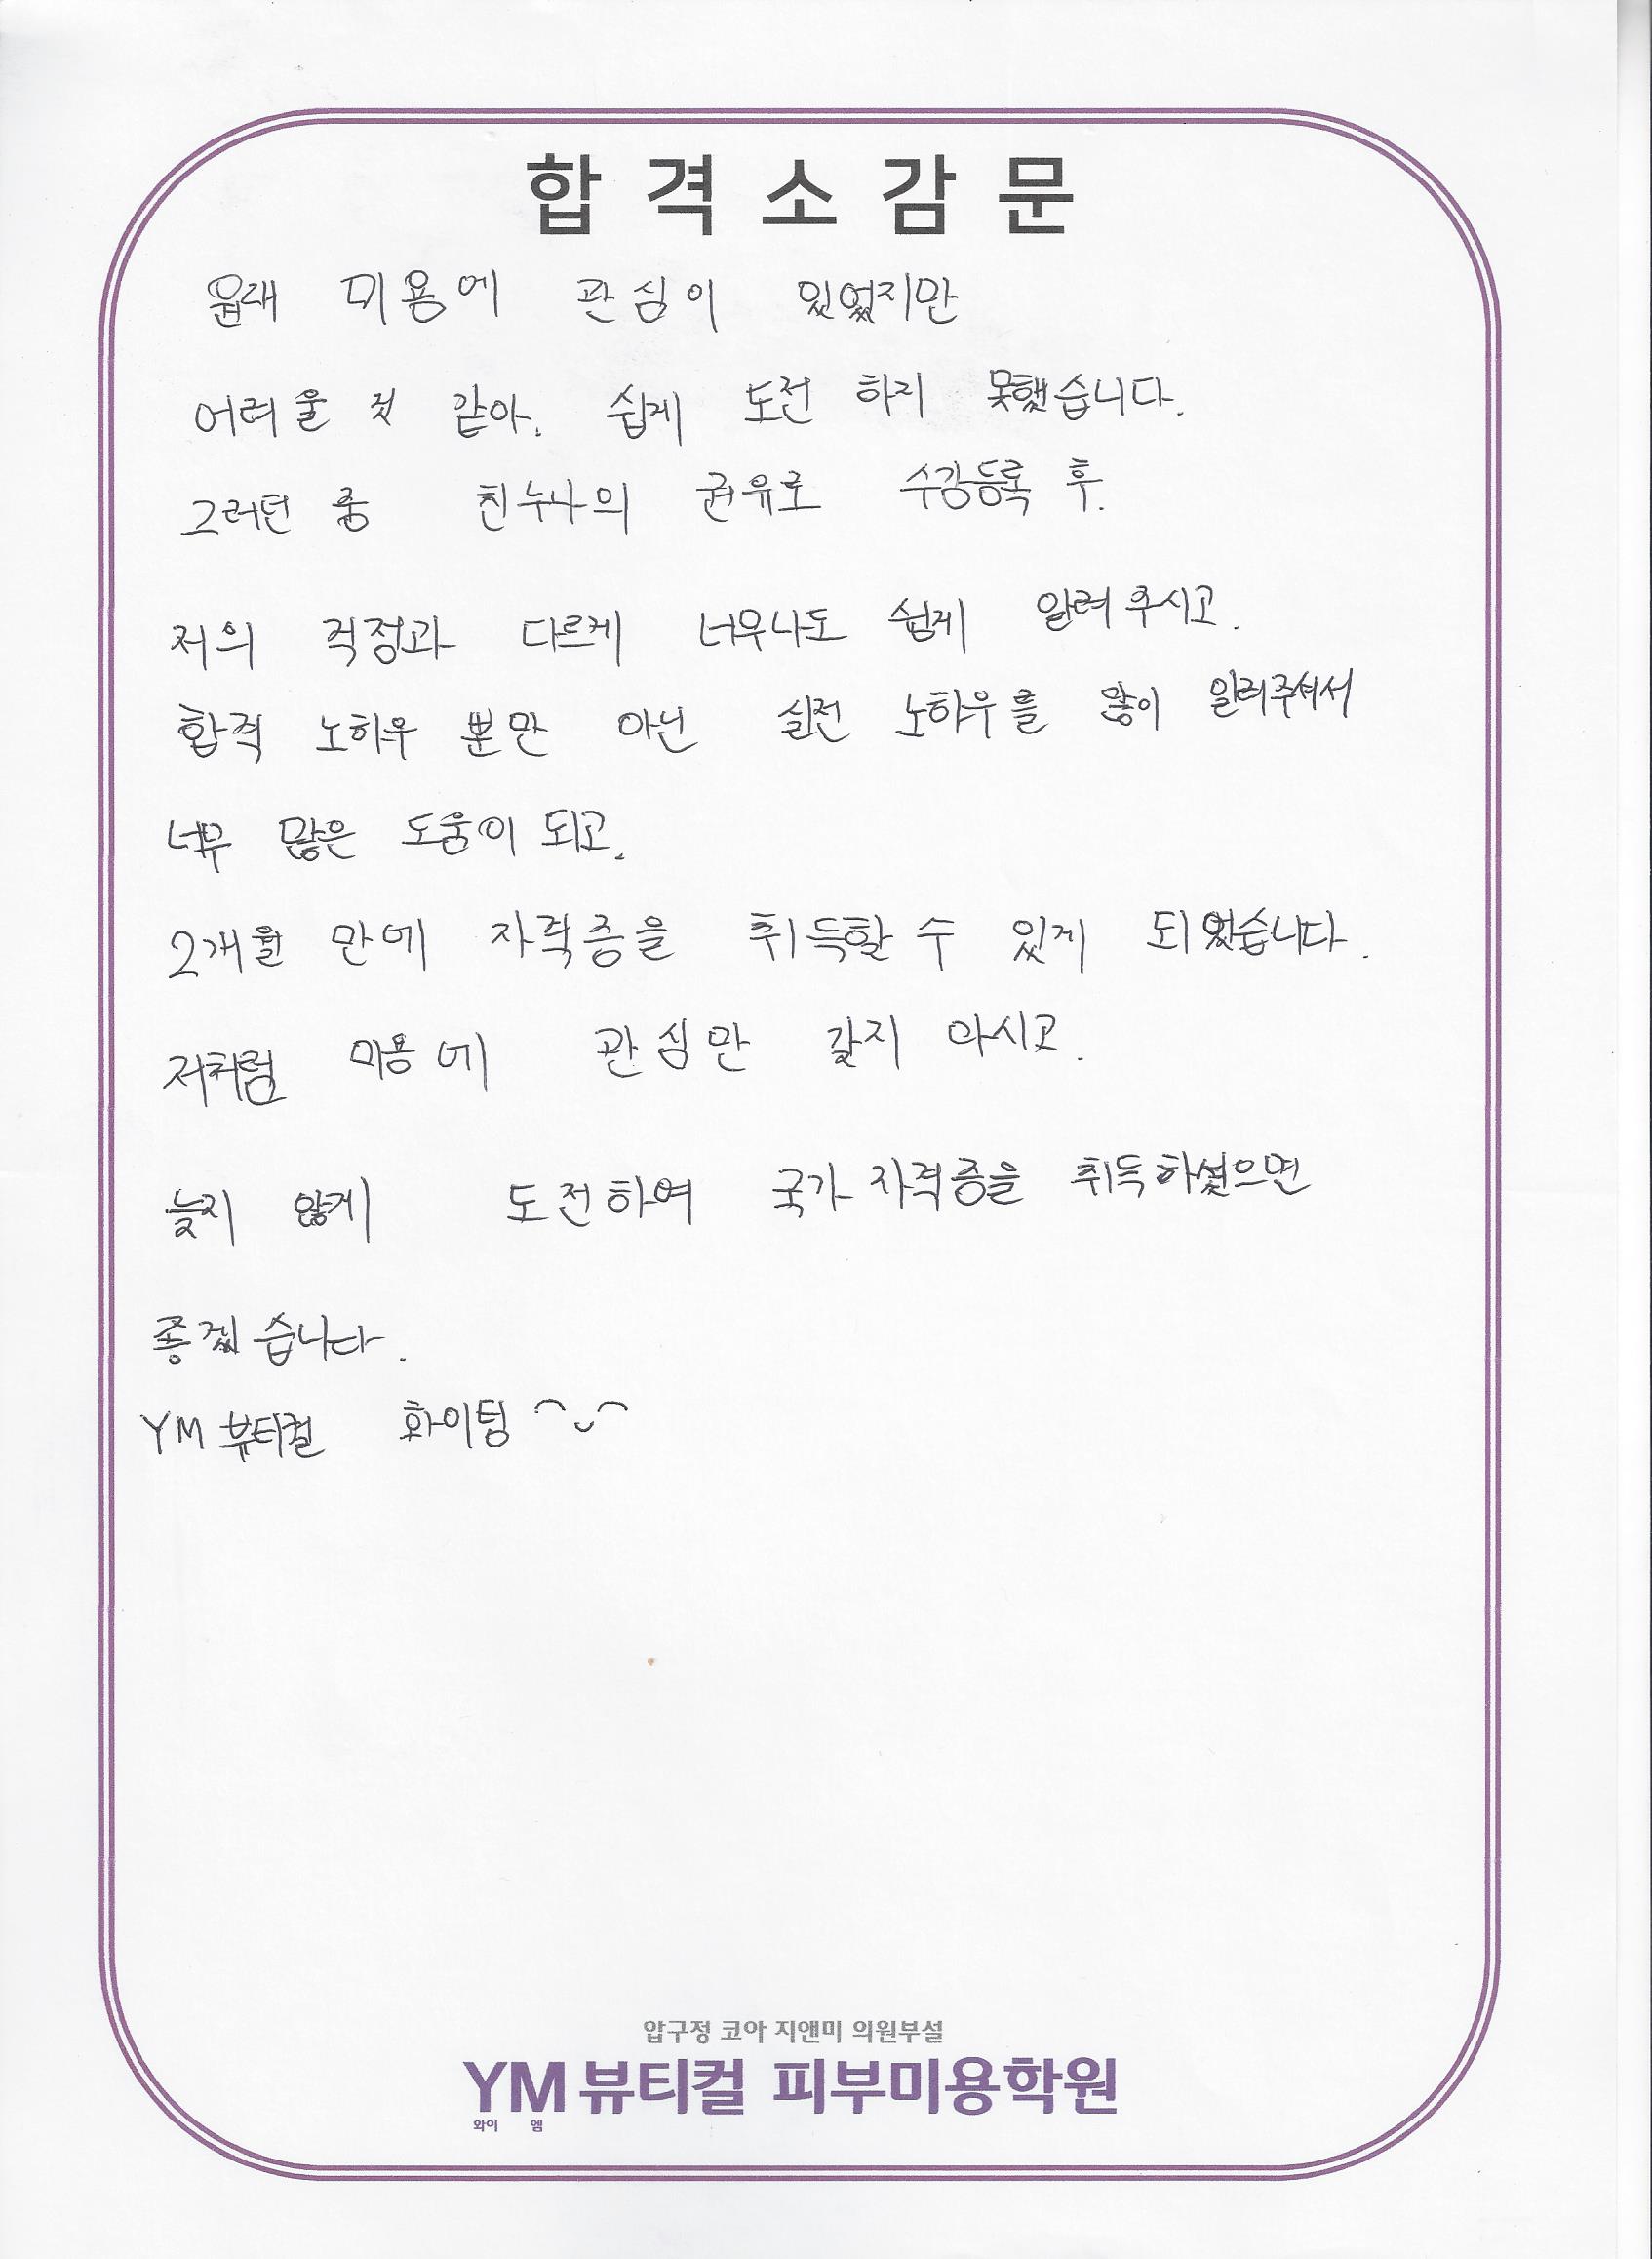 합격소감문
원래 미용에 관심이 있었지만
어려울 것 같아. 쉽게 도전 하지 못했습니다.
그러던 중 친누나의 권유로 수강등록 후.
저의 걱정과 다르게 너무나도 쉽게 알려주시고.
합격 노하우 뿐만 아닌 실전 노하우를 많이 알려주셔서
너무 많은 도움이 되고.
2개월 만에 자격증을 취득할 수 있게 되었습니다.
저처럼 미용에 관심만 갖지 마시고.
늦지 않게 도전하여 국가 자격증을 취득하셨으면
좋겠습니다.
YM 뷰티컬 화이팅 ^ᴗ^
압구정 코아 지앤미 의원부설
YM뷰티컬 피부미용학원
와이 엠